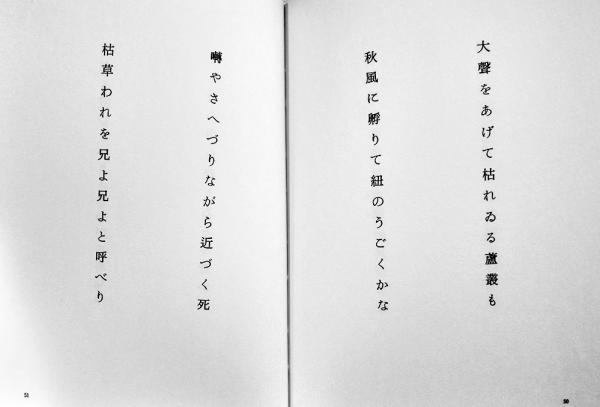 大聲をあげて枯れゐる蘆叢も
秋風に孵りて紐のうごくかな
50
囀やさへづりながら近づく死
枯草われを兄よ兄よと呼べり
51